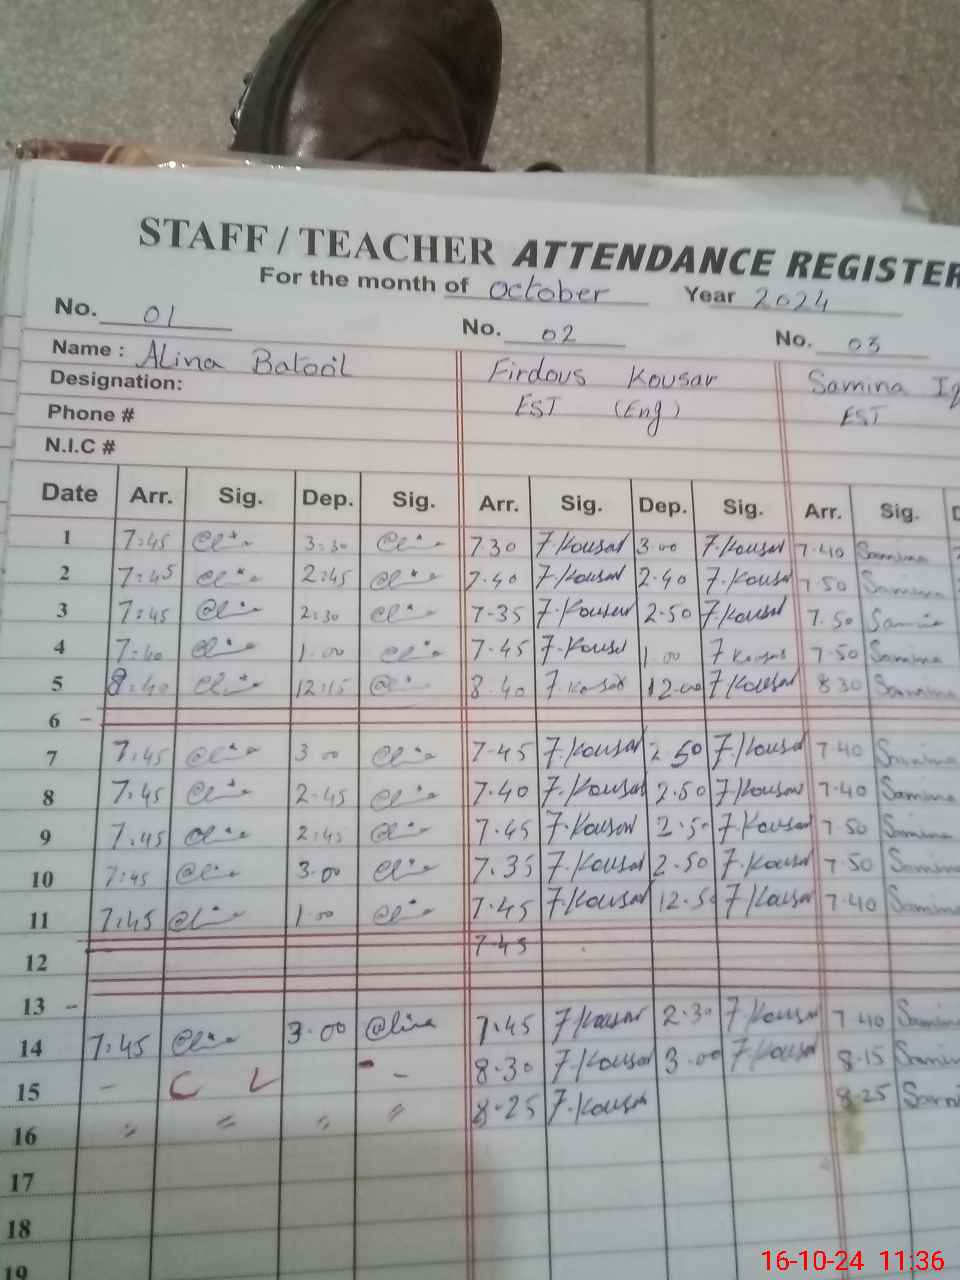 STAFF / TEACHER ATTENDANCE REGISTER
For the month of October Year 2024
No. 01 No. 02 No. 03
Name : Alina Batool Firdous Kousar Samina
Designation: EST (Eng) EST
Phone #
N.I.C #
Date Arr. Sig. Dep. Sig. Arr. Sig. Dep. Sig. Arr. Sig.
1 7:45 3:30 7.30 F.Kousar 3.00 F.Kousar 7.40 Samina
2 7:45 2:45 7.40 F.Kousar 2.40 F.Kousar 7.50 Samina
3 7:45 2:30 7.35 F.Kousar 2.50 F.Kousar 7.50 Samina
4 7:40 1.00 7.45 F.Kousar 1.00 F Kousar 7.50 Samina
5 8:40 12:15 8.40 F Kousar 12.00 F.Kousar 8 30 Samina
6 -
7 7:45 3.00 7.45 F.Kousar 2.50 F.Kousar 7.40 Samina
8 7:45 2.45 7.40 F.Kousar 2.50 F.Kousar 7.40 Samina
9 7:45 2:45 7.45 F.Kousar 2.50 F.Kousar 7 50 Samina
10 7:45 3.00 7.35 F.Kousar 2.50 F.Kousar 7.50 Samina
11 7:45 1.00 7.45 F.Kousar F.Kousar 7.40 Samina
12 7.45
13 -
14 7:45 3.00 @lina 7.45 F.Kousar 2.30 F.Kousar 7 40 Samina
15 - C L - - 8.30 F.Kousar 3.00 F.Kousar 8.15 Samina
16 " " " " 8.25 F.Kousar 8.25
17
18
19
16-10-24 11:36